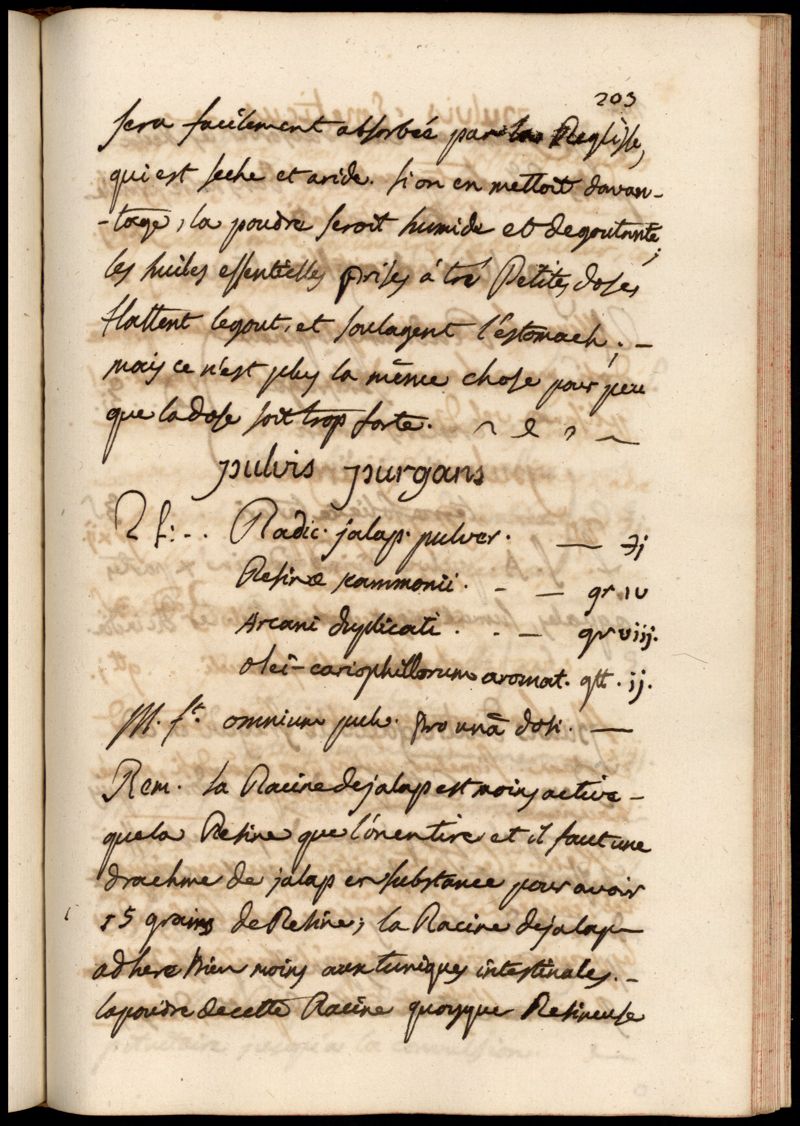 203
sera facilement absorbée par la Reglisse,
qui est seche et aride. si on en mettoit davan-
-tage, la poudre seroit humide et degoutante;
les huiles essentielles prises á tré Petites doses
flattent legout, et soulagent l'estomach; -
mais ce n'est plus la même chose pour peu
que la dose soit trop forte.
pulvis purgans
Radic. jalap. pulver. — ℈j
Resinæ scammonii. - — gr iv
Arcani duplicati. - — gr viij.
olei cariophillorum aromat. gtt. ij.
M. ft. omnium pulv. pro unâ dosi. —
Rem. la Racine de jalap est moins active -
que la Resine que l'on en tire et il faut une
drachme de jalap en substance pour avoir
15 grains de Resine; la Racine de jalap
adhere bien moins aux tuniques intestinales. -
la poudre de cette Racine quoyque Resineuse